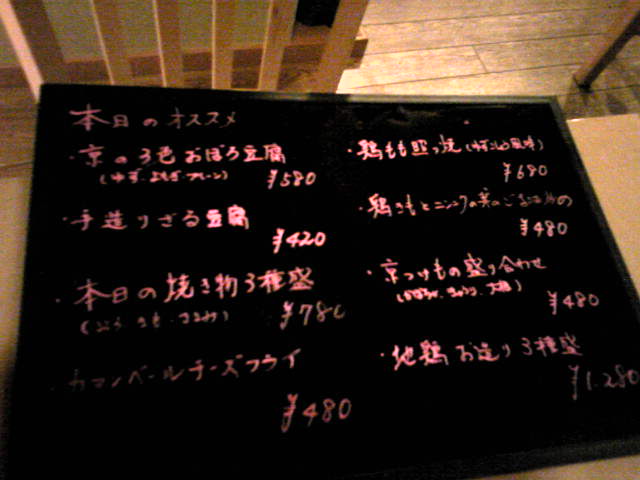 本日のオススメ
・京の3色おぼろ豆腐
(ゆず・よもぎ・プレーン)
¥580
・手造りざる豆腐
¥420
・本日の焼き物3種盛
¥780
・カマンベールチーズフライ
¥480
・鶏もも照り焼(ゆずこしょう風味)
¥680
・鶏きもとニンニクの芽の
¥480
・京つけもの盛り合わせ
¥480
・地鶏お造り3種盛
¥1.280